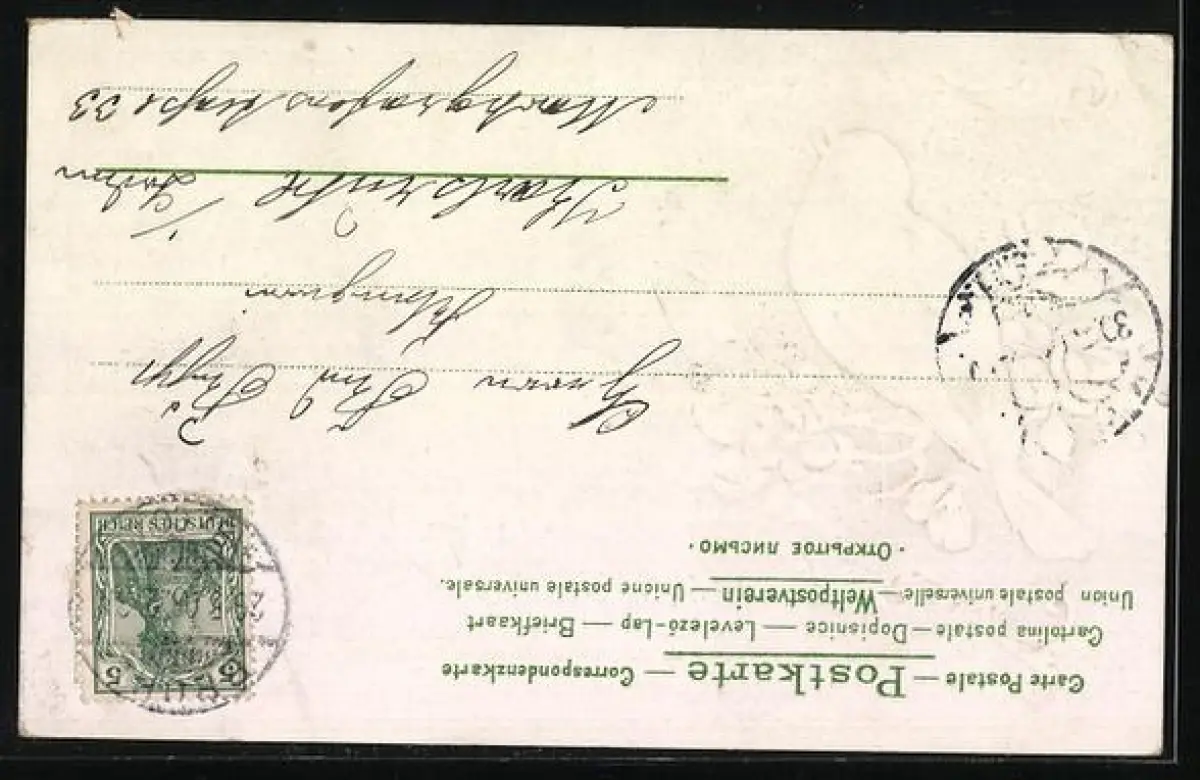 Carte Postale — Postkarte — Correspondenzkarte
Cartolina postale — Dopisnice — Levelező-Lap — Briefkaart
Union postale universelle — Weltpostverein — Unione postale universale.
· Открытое письмо ·
5 5
DEUTSCHES REICH
Herrn
Karlsruhe i/ Baden
Markgrafenstraße 33